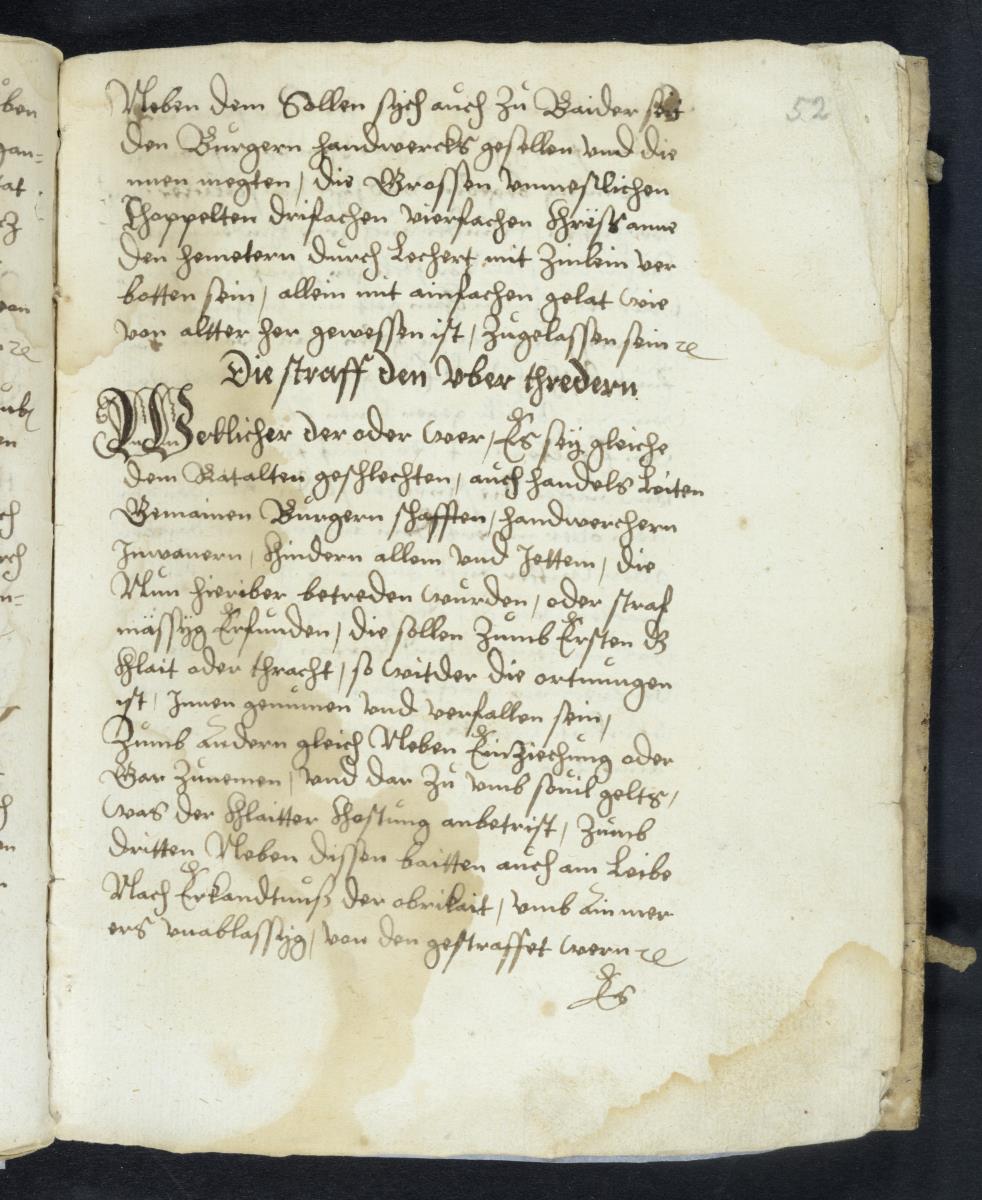 52
Neben dem Sollen sych auch zu Baider seit
den Burgern handwercks gesellen vnd die
nnen megten, die Grossen vnmeslichen
Thoppelten drifachen vierfachen khreß anne
den hemetern durch Lechert mit Zinlein ver
botten sein, allein mit ainfachen gelat wie
von altter her gewessen ist, zugelassen sein ꝛc
Die straff den vber thredern
Wetlicher der oder wer, Es sey gleiche
dem Ratalten geschlechten, auch handels Leiten
Gemainen Burgern schafften, handwerchern
Inwanern, khindern allem vnd Jettem, die
Nun hieriber betreden wurden, oder straf
mässyg Erfunden, die sollen zumb Ersten dz
khlait oder thracht, so witder die ortnungen
ist, Innen genumen vnd verfallen sein,
Zumb andern gleich Neben Einziechung oder
Gar zunemen, vnd dar zu vmb souil gelts,
was der khlaitter khostung anbetrist, zumb
dritten Neben dissen baitten auch am Leibe
Nach Erkandtnuß der obrikait, vmb ain mer
ers vnablassyg, von den gestraffet wern ꝛc
Es